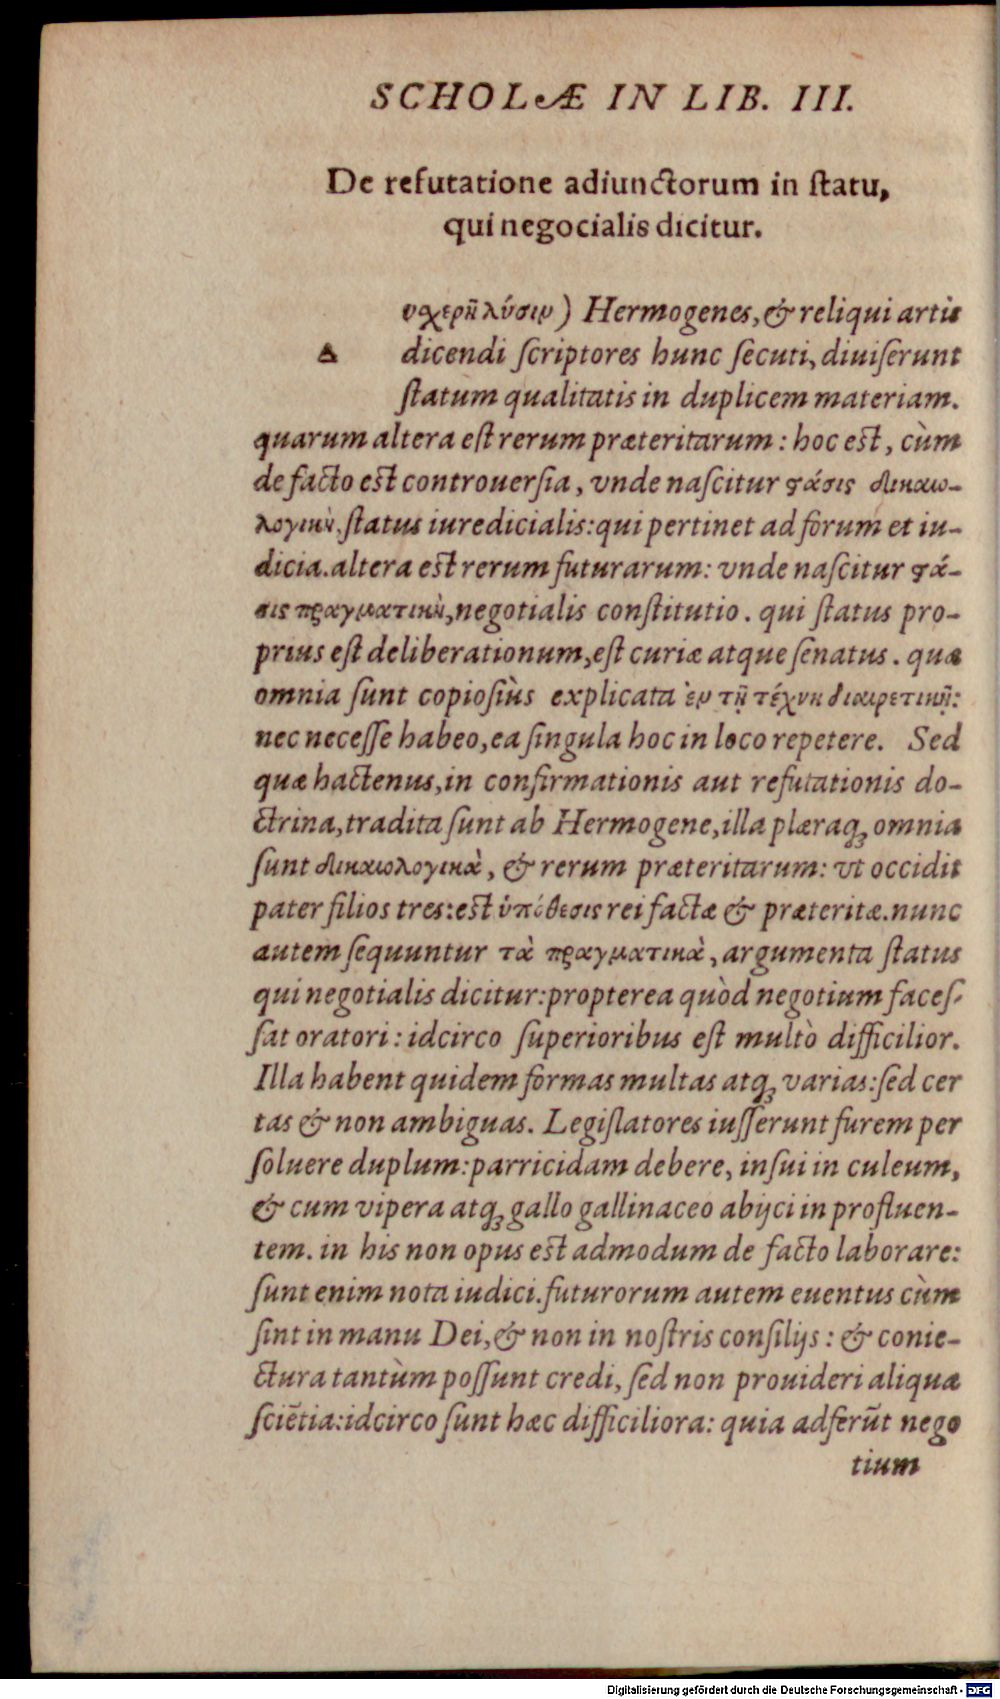 SCHOLÆ IN LIB. III.
De refutatione adiunctorum in statu,
qui negocialis dicitur.
Δ υσχερῆ λύσιν) Hermogenes, & reliqui artis
dicendi scriptores hunc secuti, diuiserunt
statum qualitatis in duplicem materiam.
quarum altera est rerum præteritarum: hoc est, cùm
de facto est controuersia, vnde nascitur στάσις δικαιο-
λογικὴ, status iuredicialis: qui pertinet ad forum et iu-
dicia. altera est rerum futurarum: vnde nascitur στά-
σις πραγματικὴ, negotialis constitutio. qui status pro-
prius est deliberationum, est curiæ atque senatus. quæ
omnia sunt copiosiùs explicata ἐν τῇ τέχνῃ διαιρετικῇ:
nec necesse habeo, ea singula hoc in loco repetere. Sed
quæ hactenus, in confirmationis aut refutationis do-
ctrina, tradita sunt ab Hermogene, illa plæraq; omnia
sunt δικαιολογικὰ, & rerum præteritarum: vt occidit
pater filios tres: est ὑπόθεσις rei factæ & præteritæ. nunc
autem sequuntur τὰ πραγματικὰ, argumenta status
qui negotialis dicitur: propterea quòd negotium faces-
sat oratori: idcirco superioribus est multò difficilior.
Illa habent quidem formas multas atq; varias: sed cer
tas & non ambiguas. Legislatores iusserunt furem per
soluere duplum: parricidam debere, insui in culeum,
& cum vipera atq; gallo gallinaceo abijci in profluen-
tem. in his non opus est admodum de facto laborare:
sunt enim nota iudici. futurorum autem euentus cùm
sint in manu Dei, & non in nostris consilijs: & conie-
ctura tantùm possunt credi, sed non prouideri aliqua
sciētia: idcirco sunt hæc difficiliora: quia adferūt nego
tium
Digitalisierung gefördert durch die Deutsche Forschungsgemeinschaft - DFG